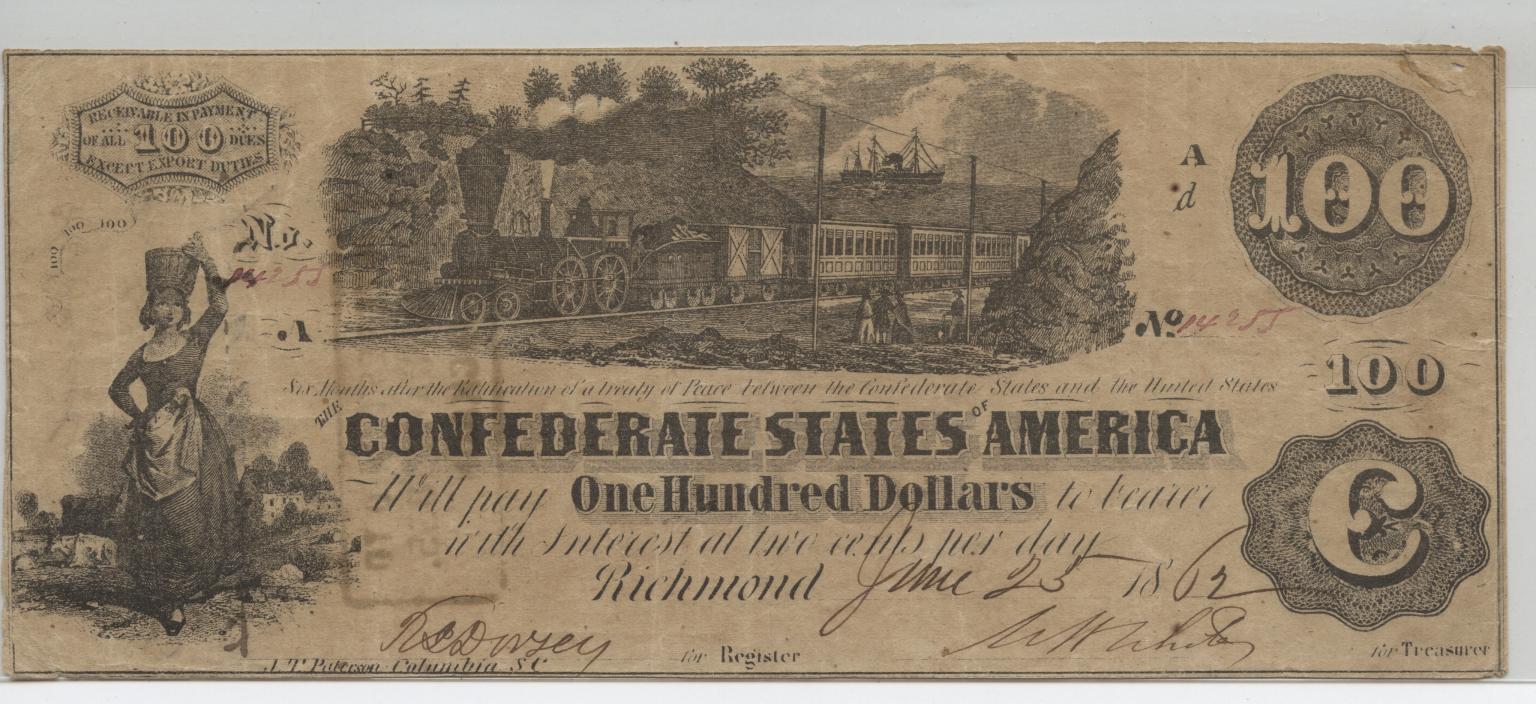 RECEIVABLE IN PAYMENT
OF ALL 100 DUES
EXCEPT EXPORT DUTIES
100
A
d
100 100 100
No.
14255
A
No 14255
Six Months after the Ratification of a treaty of Peace between the Confederate States and the United States
100
THE CONFEDERATE STATES OF AMERICA
Will pay One Hundred Dollars to bearer
with Interest at two cents per day
C
Richmond June 25 1862
R C Dorsey
for Register
for Treasurer
J. T. Paterson Columbia S C